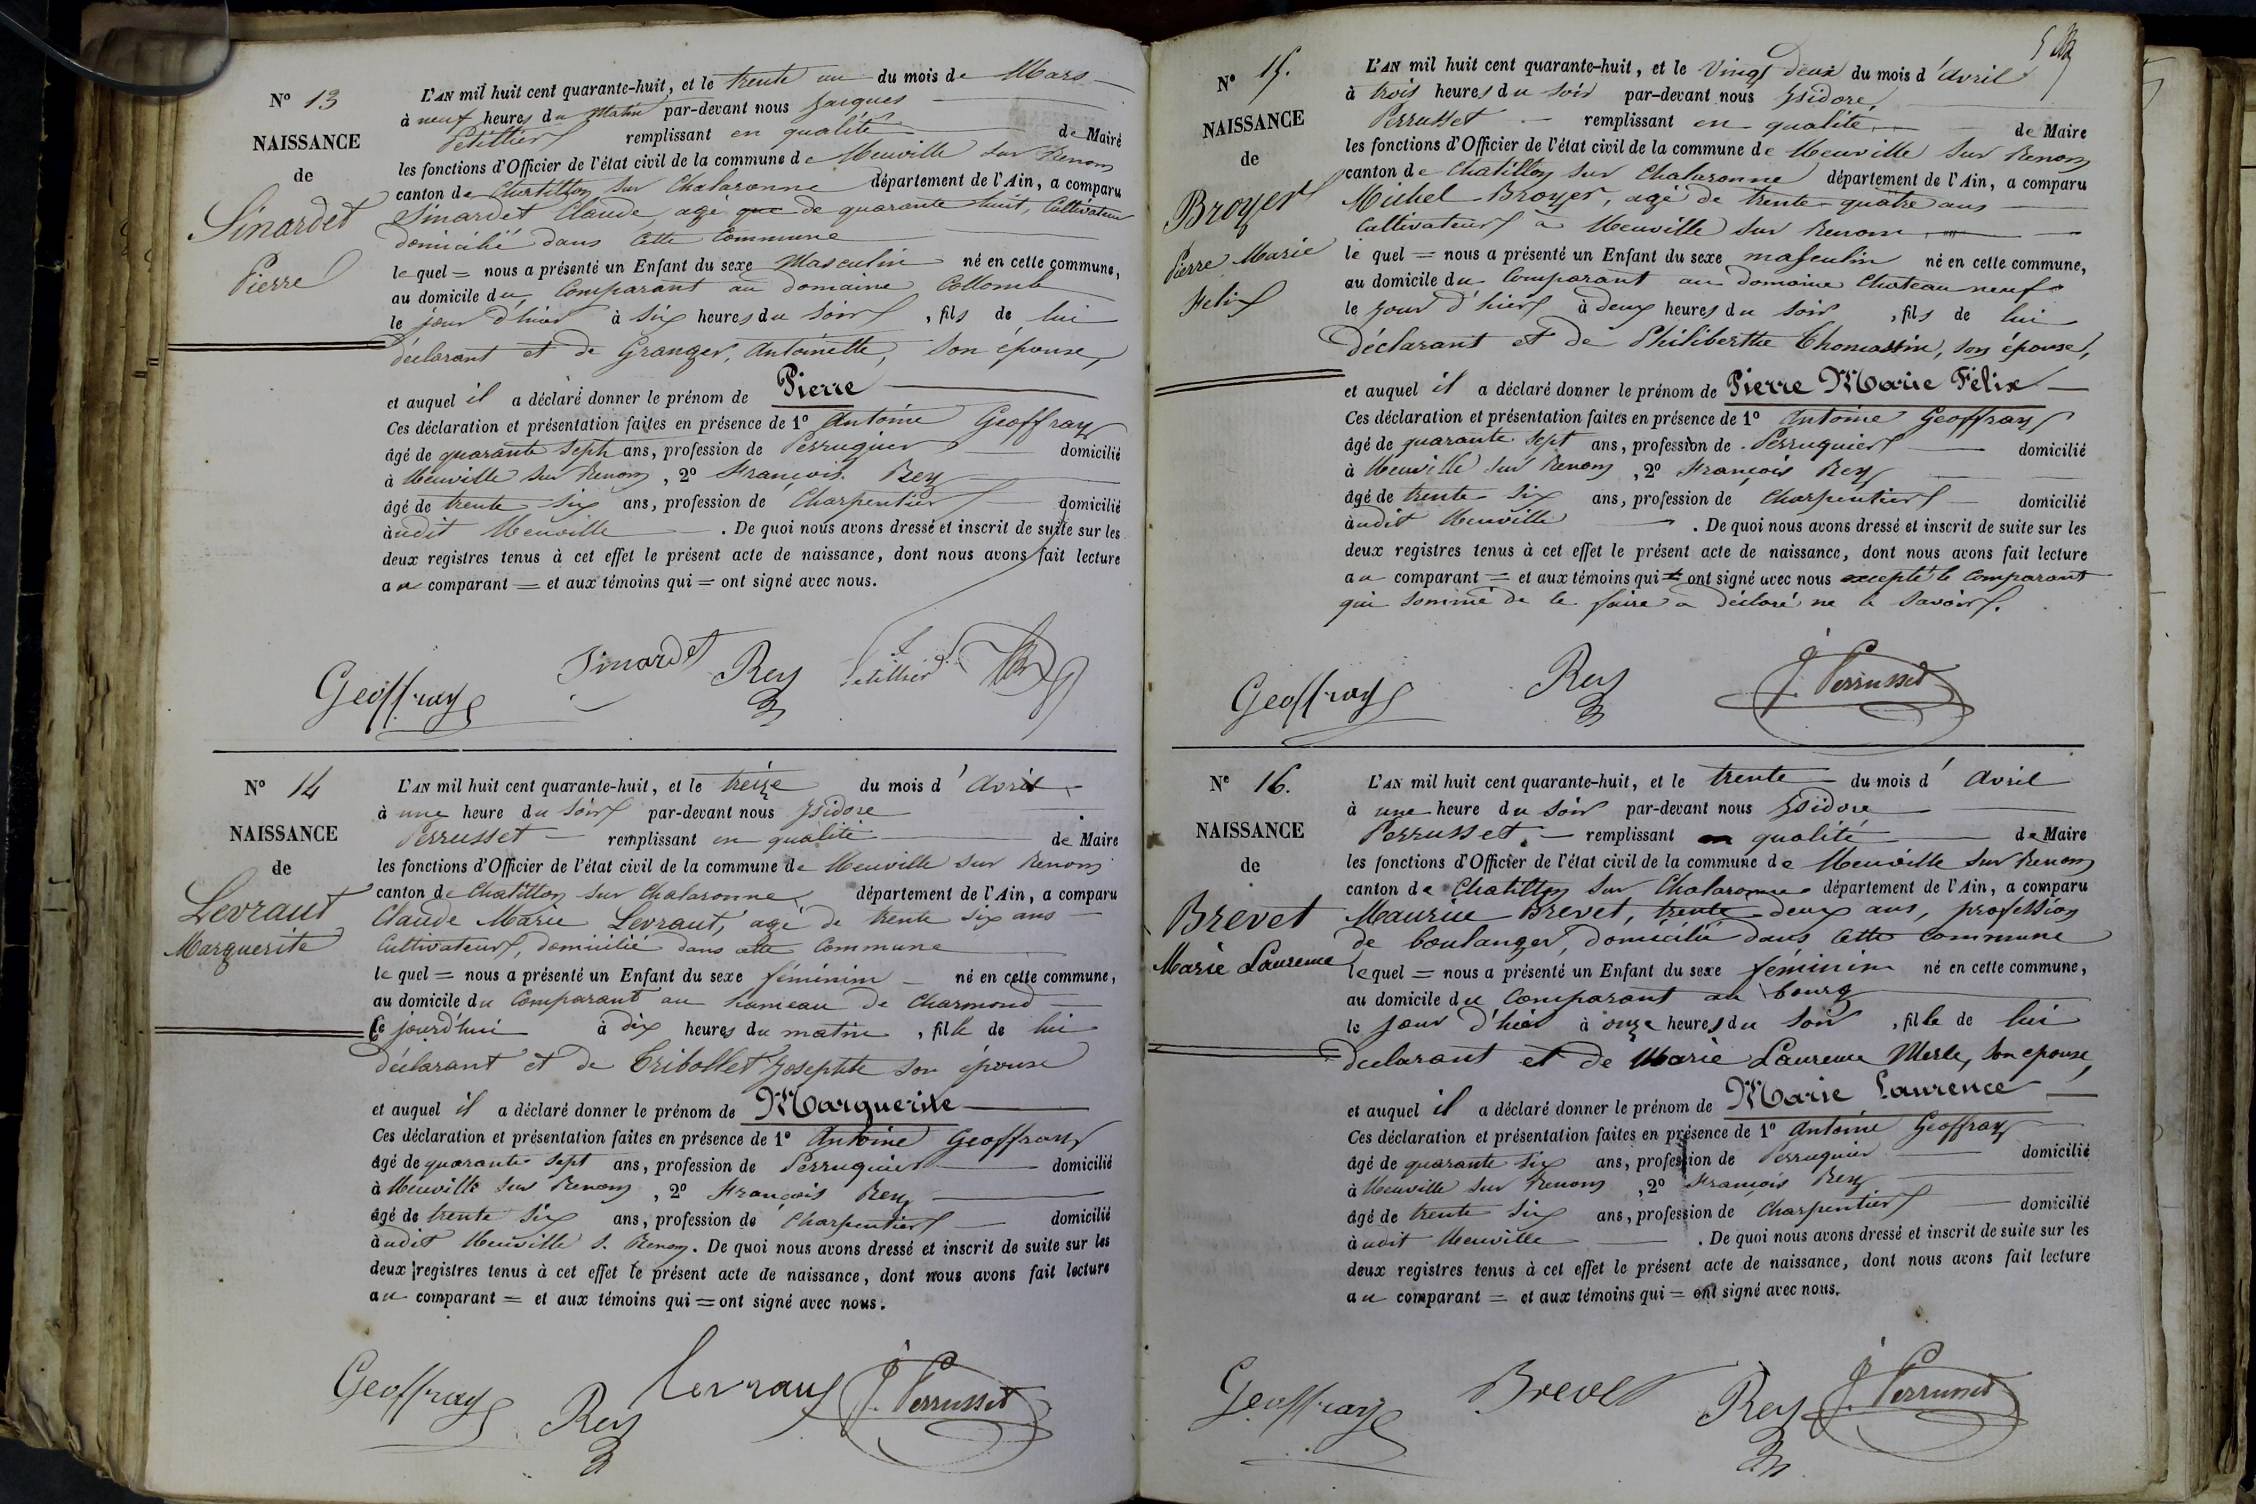 N° 13
NAISSANCE
de
Sinardet
Pierre
L'AN mil huit cent quarante-huit, et le trente un du mois de Mars
à neuf heures du matin par-devant nous Jacques
Petillier remplissant en qualité de Maire
les fonctions d'Officier de l'état civil de la commune de Neuville sur Renom
canton de Chatillon sur Chalaronne département de l'Ain, a comparu
Sinardet Claude, agé que de quarante huit, Cultivateur
domicilié dans cette Commune
le quel = nous a présenté un Enfant du sexe Masculin né en cette commune,
au domicile du Comparant au domaine Collomb
le jour d'hier à six heures du soir, fils de lui
déclarant et de Granger, Antoinette, son épouse,
et auquel il a déclaré donner le prénom de Pierre
Ces déclaration et présentation faites en présence de 1° Antoine Geoffray
âgé de quarante sept ans, profession de Perruquier domicilié
à Neuville sur Renom, 2° François Rey
âgé de trente six ans, profession de Charpentier domicilié
audit Neuville. De quoi nous avons dressé et inscrit de suite sur les
deux registres tenus à cet effet le présent acte de naissance, dont nous avons fait lecture
au comparant = et aux témoins qui = ont signé avec nous.
Geoffray Sinardet Rey Petillier
N° 14
NAISSANCE
de
Levraut
Marguerite
L'AN mil huit cent quarante-huit, et le treize du mois d'Avril
à une heure du soir par-devant nous Ysidore
Perrusset remplissant en qualité de Maire
les fonctions d'Officier de l'état civil de la commune de Neuville sur Renom
canton de Chatillon sur Chalaronne département de l'Ain, a comparu
Claude Marie Levraut, agé de trente six ans
Cultivateur, domicilié dans cette Commune
le quel = nous a présenté un Enfant du sexe féminin né en cette commune,
au domicile du Comparant au hameau de Charmond
Ce jourd'hui à dix heures du matin, fille de lui
déclarant et de Tribollet Josephte son épouse
et auquel il a déclaré donner le prénom de Marguerite
Ces déclaration et présentation faites en présence de 1° Antoine Geoffray
âgé de quarante sept ans, profession de Perruquier domicilié
à Neuville sur Renom, 2° François Rey
âgé de trente six ans, profession de Charpentier domicilié
audit Neuville s. Renom. De quoi nous avons dressé et inscrit de suite sur les
deux registres tenus à cet effet le présent acte de naissance, dont nous avons fait lecture
au comparant = et aux témoins qui = ont signé avec nous.
Geoffray Rey Levraut J. Perrusset
N° 15.
NAISSANCE
de
Broyer
Pierre Marie
Felix
L'AN mil huit cent quarante-huit, et le Vingt deux du mois d'Avril
à trois heures du soir par-devant nous Ysidore,
Perrusset remplissant en qualité de Maire
les fonctions d'Officier de l'état civil de la commune de Neuville sur Renom
canton de Chatillon sur Chalaronne département de l'Ain, a comparu
Michel Broyer, agé de trente quatre ans
Cultivateur à Neuville sur Renom
le quel = nous a présenté un Enfant du sexe masculin né en cette commune,
au domicile du Comparant au domaine Chateau neuf
le jour d'hier à deux heures du soir, fils de lui
déclarant et de Philiberthe Thomassin, son épouse,
et auquel il a déclaré donner le prénom de Pierre Marie Félix
Ces déclaration et présentation faites en présence de 1° Antoine Geoffray
âgé de quarante sept ans, profession de Perruquier domicilié
à Neuville sur Renom, 2° François Rey
âgé de trente six ans, profession de Charpentier domicilié
audit Neuville. De quoi nous avons dressé et inscrit de suite sur les
deux registres tenus à cet effet le présent acte de naissance, dont nous avons fait lecture
au comparant = et aux témoins qui = ont signé avec nous excepté le Comparant
qui sommé de le faire a déclaré ne le savoir.
Geoffray Rey J. Perrusset
N° 16.
NAISSANCE
de
Brevet
Marie Laurence
L'AN mil huit cent quarante-huit, et le trente du mois d'Avril
à une heure du soir par-devant nous Ysidore
Perrusset remplissant en qualité de Maire
les fonctions d'Officier de l'état civil de la commune de Neuville sur Renom
canton de Chatillon sur Chalaronne département de l'Ain, a comparu
Maurice Brevet, trente deux ans, profession
de boulanger, domicilié dans cette commune
lequel = nous a présenté un Enfant du sexe féminin né en cette commune,
au domicile du Comparant au bourg
le jour d'hier à onze heures du soir, fille de lui
declarant et de Marie Laurence Merle, son epouse,
et auquel il a déclaré donner le prénom de Marie Laurence
Ces déclaration et présentation faites en présence de 1° Antoine Geoffray
âgé de quarante six ans, profession de Perruquier domicilié
à Neuville sur Renom, 2° François Rey
âgé de trente six ans, profession de Charpentier domicilié
audit Neuville. De quoi nous avons dressé et inscrit de suite sur les
deux registres tenus à cet effet le présent acte de naissance, dont nous avons fait lecture
au comparant = et aux témoins qui = ont signé avec nous.
Geoffray Brevet Rey J. Perrusset